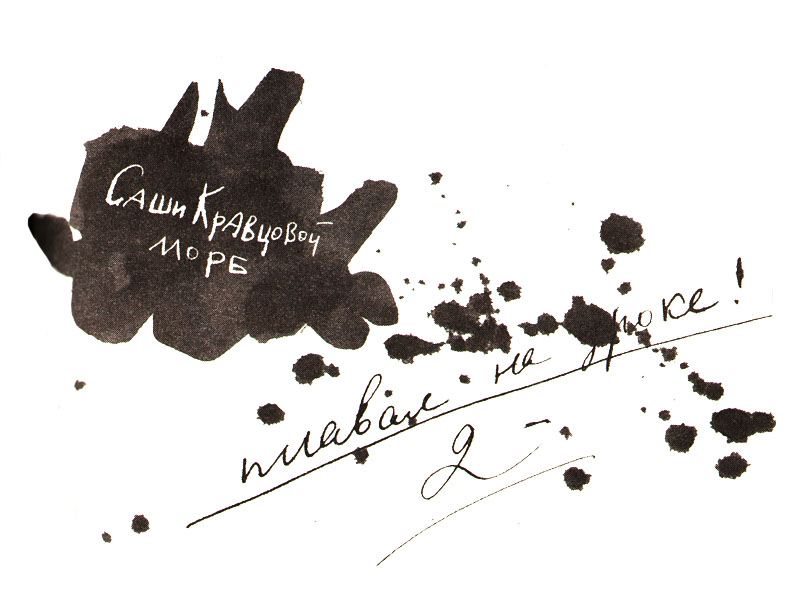 Саши Кравцовой
МОРБ
плавал на уроке!
2-